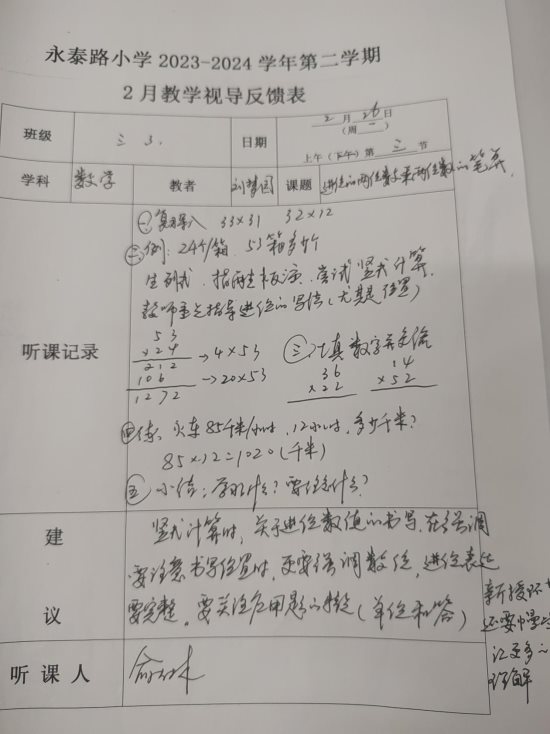 永泰路小学 2023-2024 学年第二学期
2 月教学视导反馈表
班级 三 3. 日期 2 月 26 日
(周一)
上午(下午)第 三 节
学科 数学 教者 课题 进位的两位数乘两位数的笔算
听课记录
㊀复习导入 33×31 32×12
㊁例:24个/箱 53箱多少个
生列式,指两生板演,尝试竖式计算,
教师重点指导进位的写法(尤其是位置)
53
×24
212 → 4×53
106 → 20×53
1272
㊂计算 数字
36
×22
14
×52
㊃练:火车85千米/小时,12小时,多少千米?
85×12=1020(千米)
㊄小结:学的什么?要注意什么?
建议
竖式计算时,关于进位数值的书写,在强调
要注意书写位置时,更要强调数位,进位表达
要完整。要关注应用题的(单位和答)
新授环节
还要
让更多的
理解
听课人